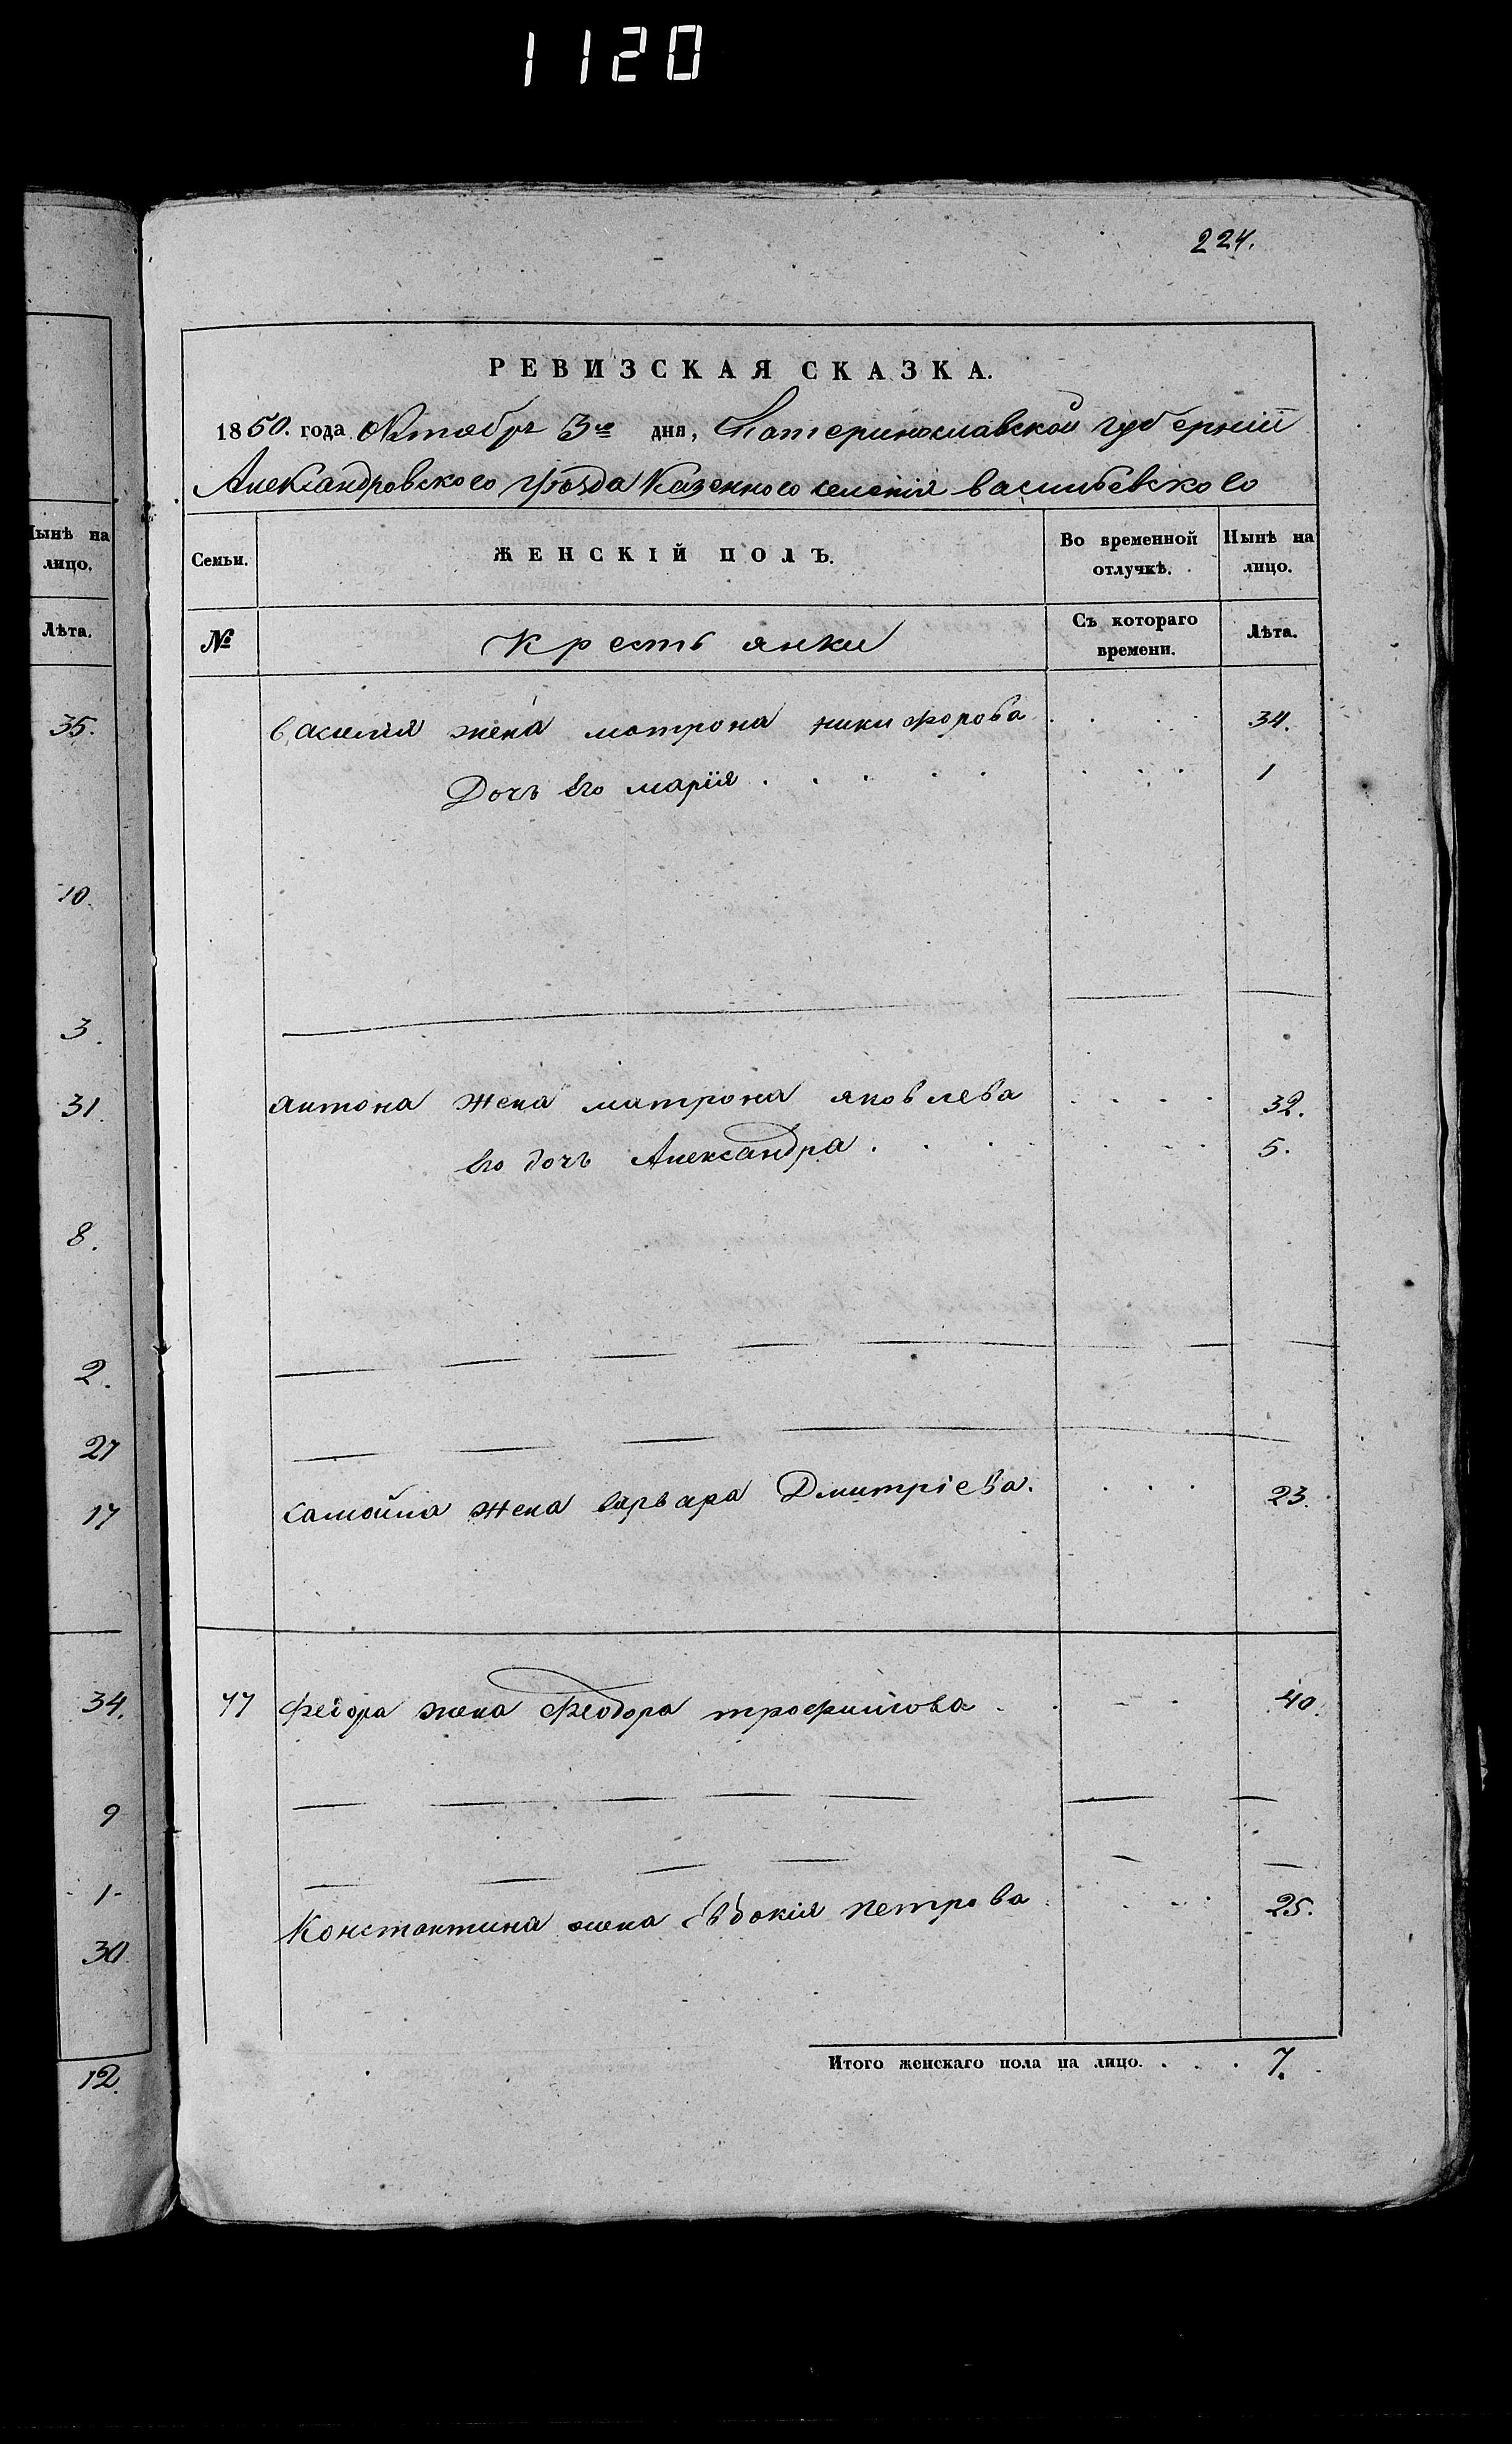 1120
224.
РЕВИЗСКАЯ СКАЗКА.
1850. года Октября 3го дня, Екатеринославской губернии
Александровского уѣзда Казенного селения васильевкого
Нынѣ на лицо.
Семьи.
ЖЕНСКІЙ ПОЛЪ.
Во временной отлучкѣ.
Нынѣ на лицо.
Лѣта.
№
Крестьянки
Съ котораго времени.
Лѣта.
35.
василия жена матрона никифорова 34.
Дочь его марія 1
10.
3.
31.
антона жена матрона яковлева 32.
его дочь Александра 5.
8.
2.
27
17
самойла жена варвара Дмитріева. 23.
34.
77 федора жена Феодора трофимова 40.
9
1
30
Константина жена Евдокия петрова 25.
12.
Итого женскаго пола на лицо. 7.